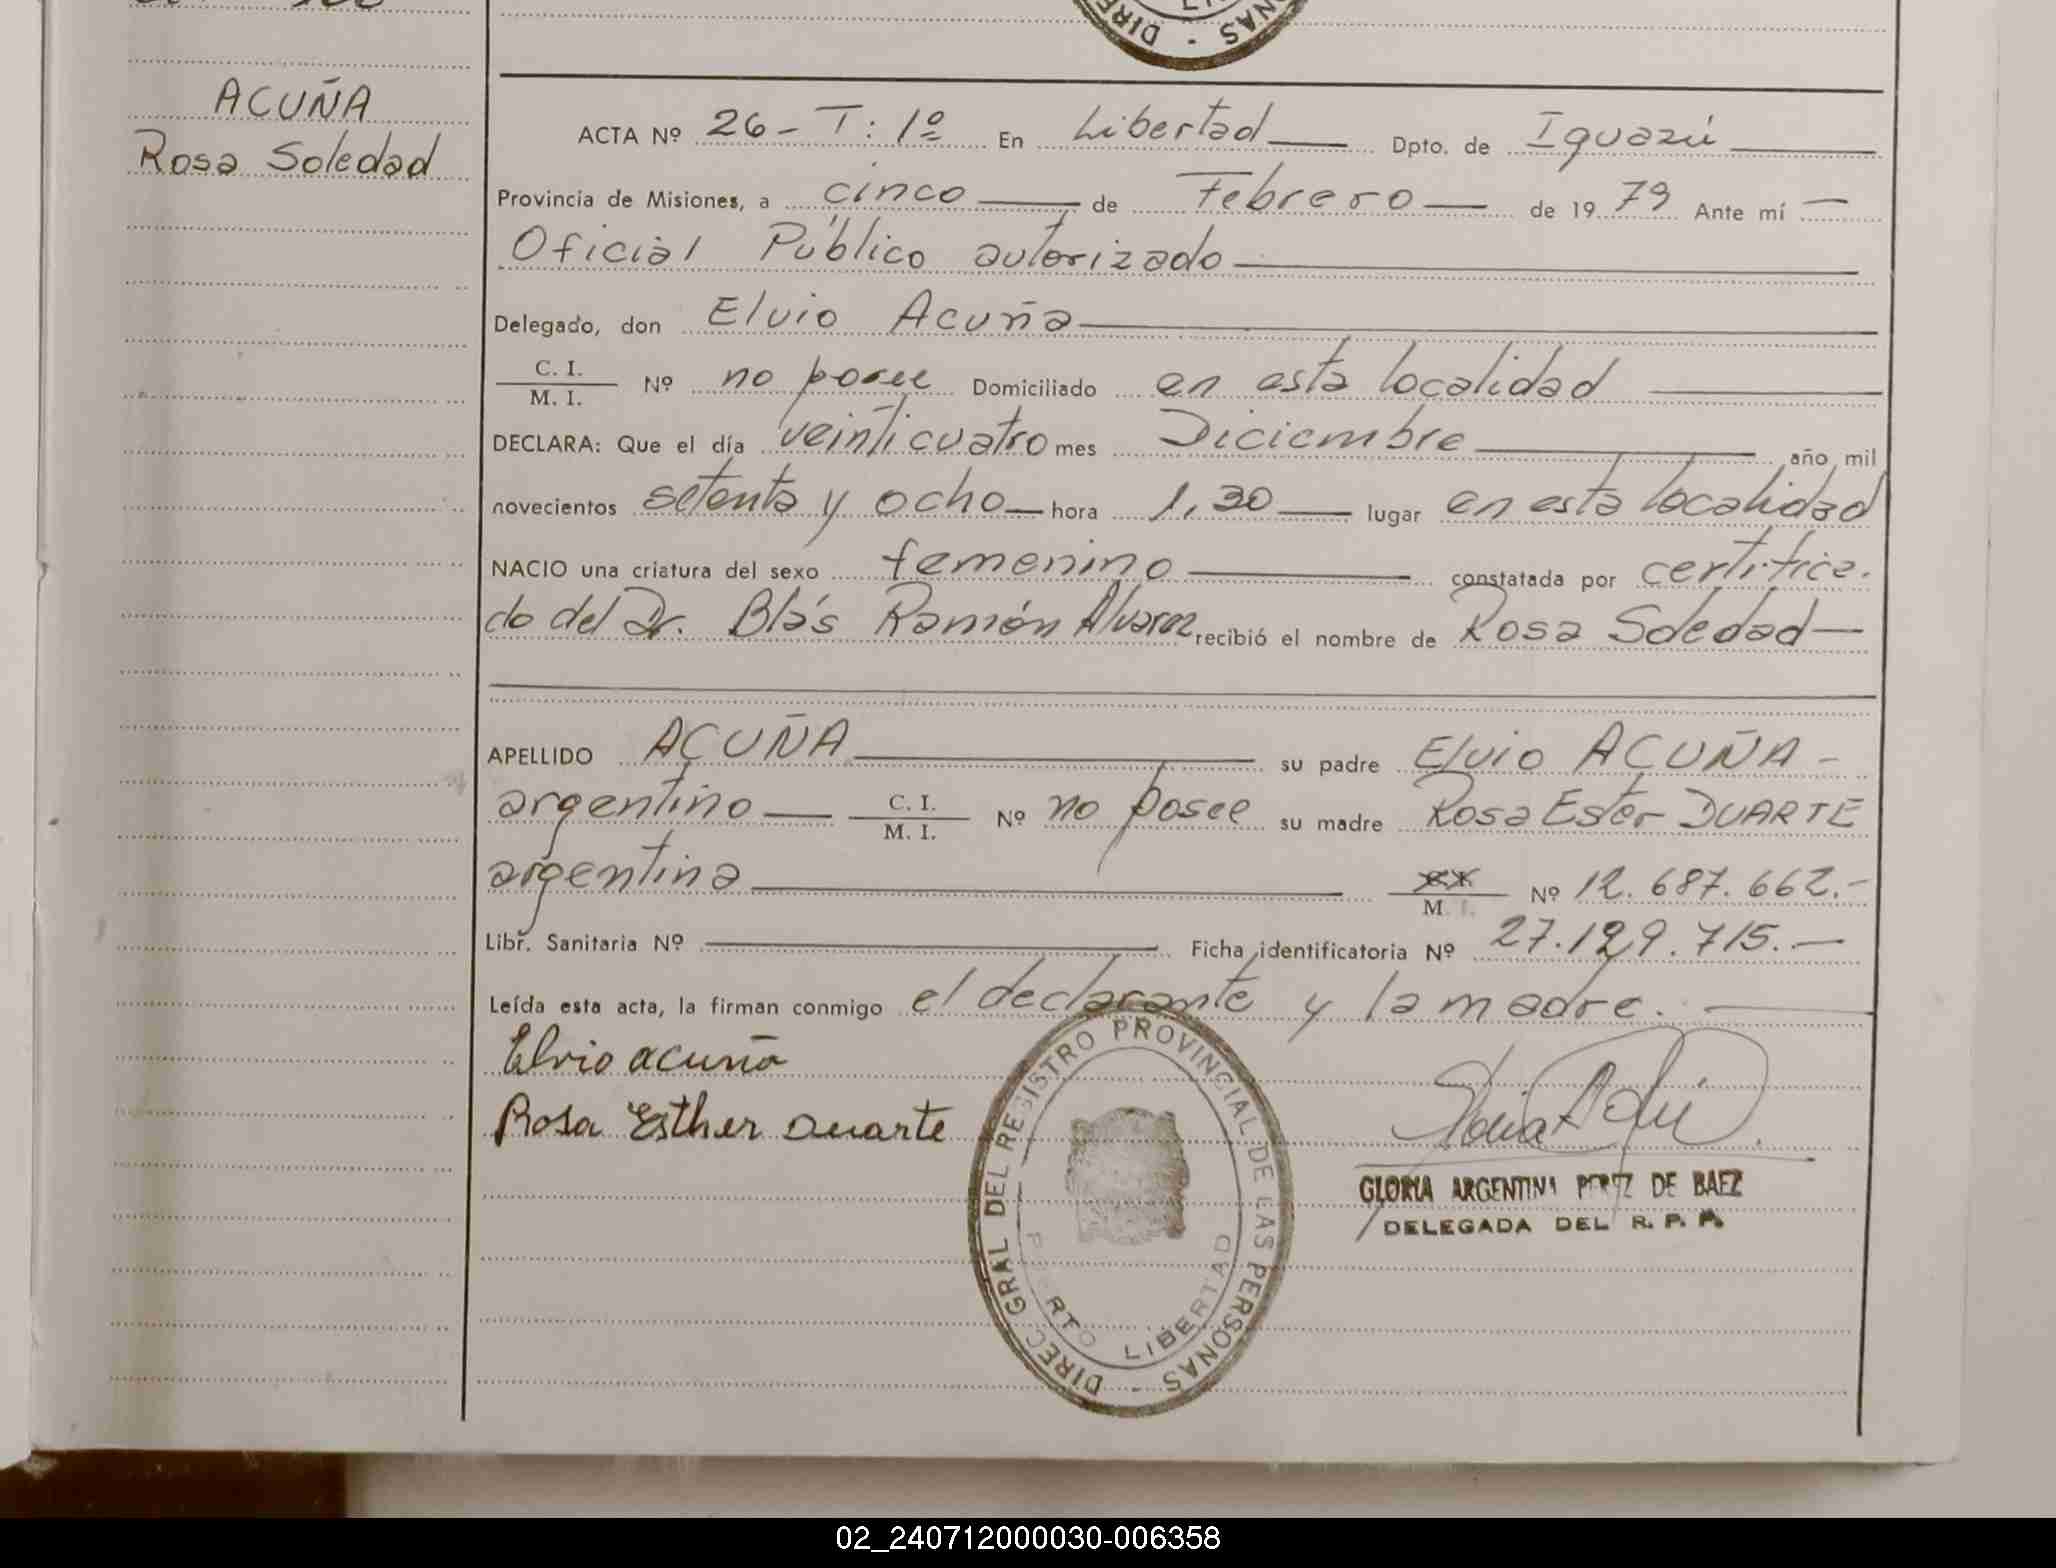 ACUÑA
Rosa Soledad
ACTA Nº 26 - T: 1º En Libertad Dpto. de Iguazú
Provincia de Misiones, a cinco de Febrero de 1979 Ante mí
Oficial Público autorizado
Delegado, don Elvio Acuña
C. I.
M. I.
Nº no posee Domiciliado en esta localidad
DECLARA: Que el día veinticuatro mes Diciembre año mil
novecientos setenta y ocho hora 1,30 lugar en esta localidad
NACIO una criatura del sexo femenino constatada por certifica-
do del Dr. Blás Ramón Alvarez recibió el nombre de Rosa Soledad
APELLIDO ACUÑA su padre Elvio ACUÑA -
argentino C. I. M. I. Nº no posee su madre Rosa Ester DUARTE
argentina M. I. Nº 12.687.662.-
Libr. Sanitaria Nº Ficha identificatoria Nº 27.129.715.-
Leída esta acta, la firman conmigo el declarante y la madre.
Elvio acuña
Rosa Esther Duarte
DIREC GRAL DEL REGISTRO PROVINCIAL DE LAS PERSONAS -
PUERTO LIBERTAD
GLORIA ARGENTINA PEREZ DE BAEZ
DELEGADA DEL R. P. P.
02_240712000030-006358